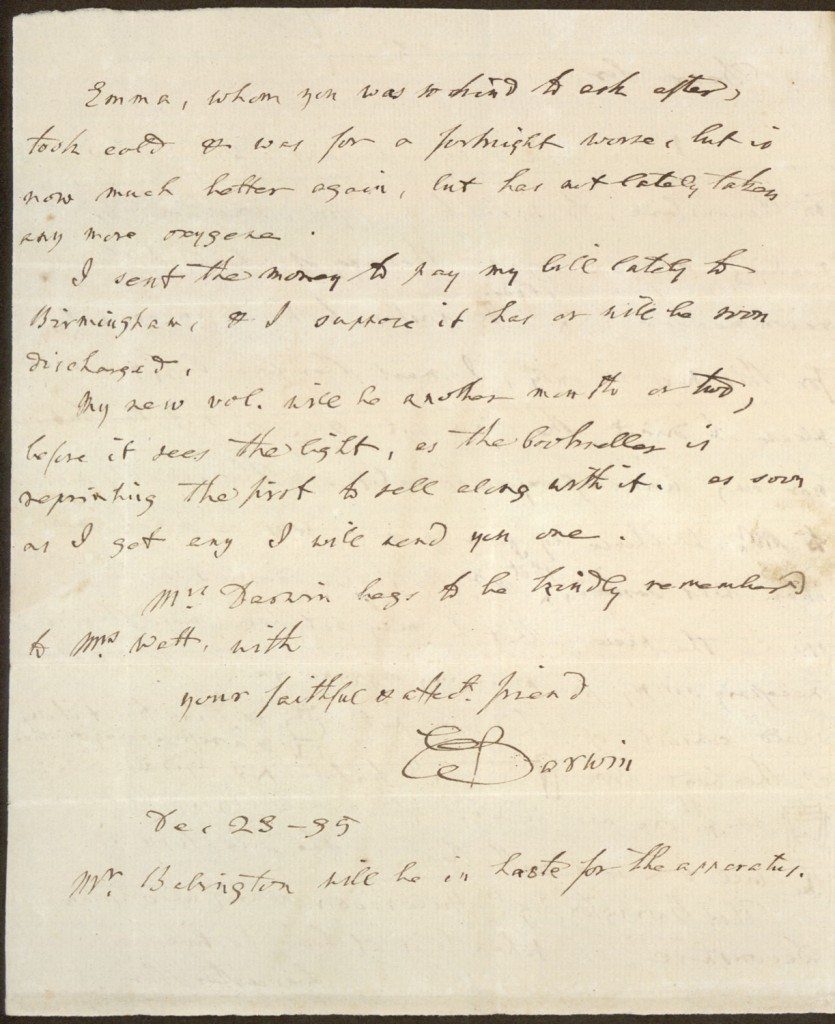 Emma, whom you was so kind to ask after,
took cold & was for a fortnight worse, but is
now much better again, but has not lately taken
any more oxygene.
I sent the money to pay my bill lately to
Birmingham, & I suppose it has or will be soon
discharged.
My new vol. will be another month or two,
before it sees the light, as the bookseller is
reprinting the first to sell along with it. as soon
as I get any I will send you one.
Mrs Darwin begs to be kindly remember'd
to Mrs Watt, with
your faithful & affect. friend
E Darwin
Dec 23-95
Mr. Bebington will be in haste for the apparatus.